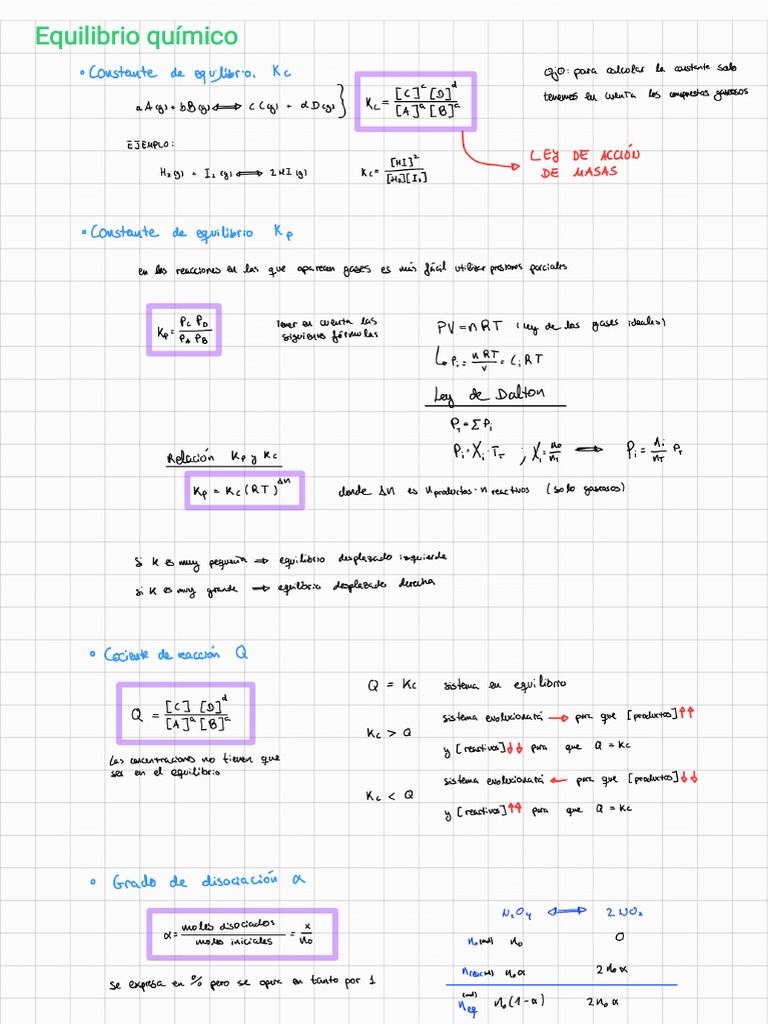 Equilibrio químico
• Constante de equilibrio. Kc
a A(g) + b B(g) ⟺ c C(g) + d D(g) }
Kc = [C]^c [D]^d / [A]^a [B]^a
ojo: para calcular la constante solo
tenemos en cuenta los compuestos gaseosos
EJEMPLO:
H₂(g) + I₂(g) ⟺ 2HI(g)
Kc = [HI]² / [H₂][I₂]
LEY DE ACCIÓN
DE MASAS
• Constante de equilibrio Kp
en las reacciones en las que aparecen gases es más fácil utilizar presiones parciales
Kp = PC PD / PA PB
Tener en cuenta las
siguientes fórmulas
PV = nRT (ley de los gases ideales)
Pi = nRT / V = Ci RT
Ley de Dalton
PT = Σ Pi
Pi · Xi · TT ; Xi = n₀ / nT ⟺ Pi = ni / nT PT
Relación Kp y Kc
Kp = Kc (RT)^Δn
donde Δn es n productos - n reactivos (solo gaseosos)
si K es muy pequeña ⟹ equilibrio desplazado izquierda
si K es muy grande ⟹ equilibrio desplazado derecha
• Cociente de reacción Q
Q = [C] [D]^d / [A]^a [B]^a
Las concentraciones no tienen que
ser en el equilibrio
Q = Kc sistema en equilibrio
Kc > Q sistema evolucionará → para que [productos]↑↑
y [reactivos]↓↓ para que Q = Kc
Kc < Q sistema evolucionará ← para que [productos]↓↓
y [reactivos]↑↑ para que Q = Kc
• Grado de disociación α
α = moles disociados / moles iniciales = x / n₀
se expresa en % pero se opera en tanto por 1
N₂O₄ ⟺ 2NO₂
n₀(mol) n₀ 0
nreac(mol) n₀α 2n₀α
neq(mol) n₀(1-α) 2n₀α